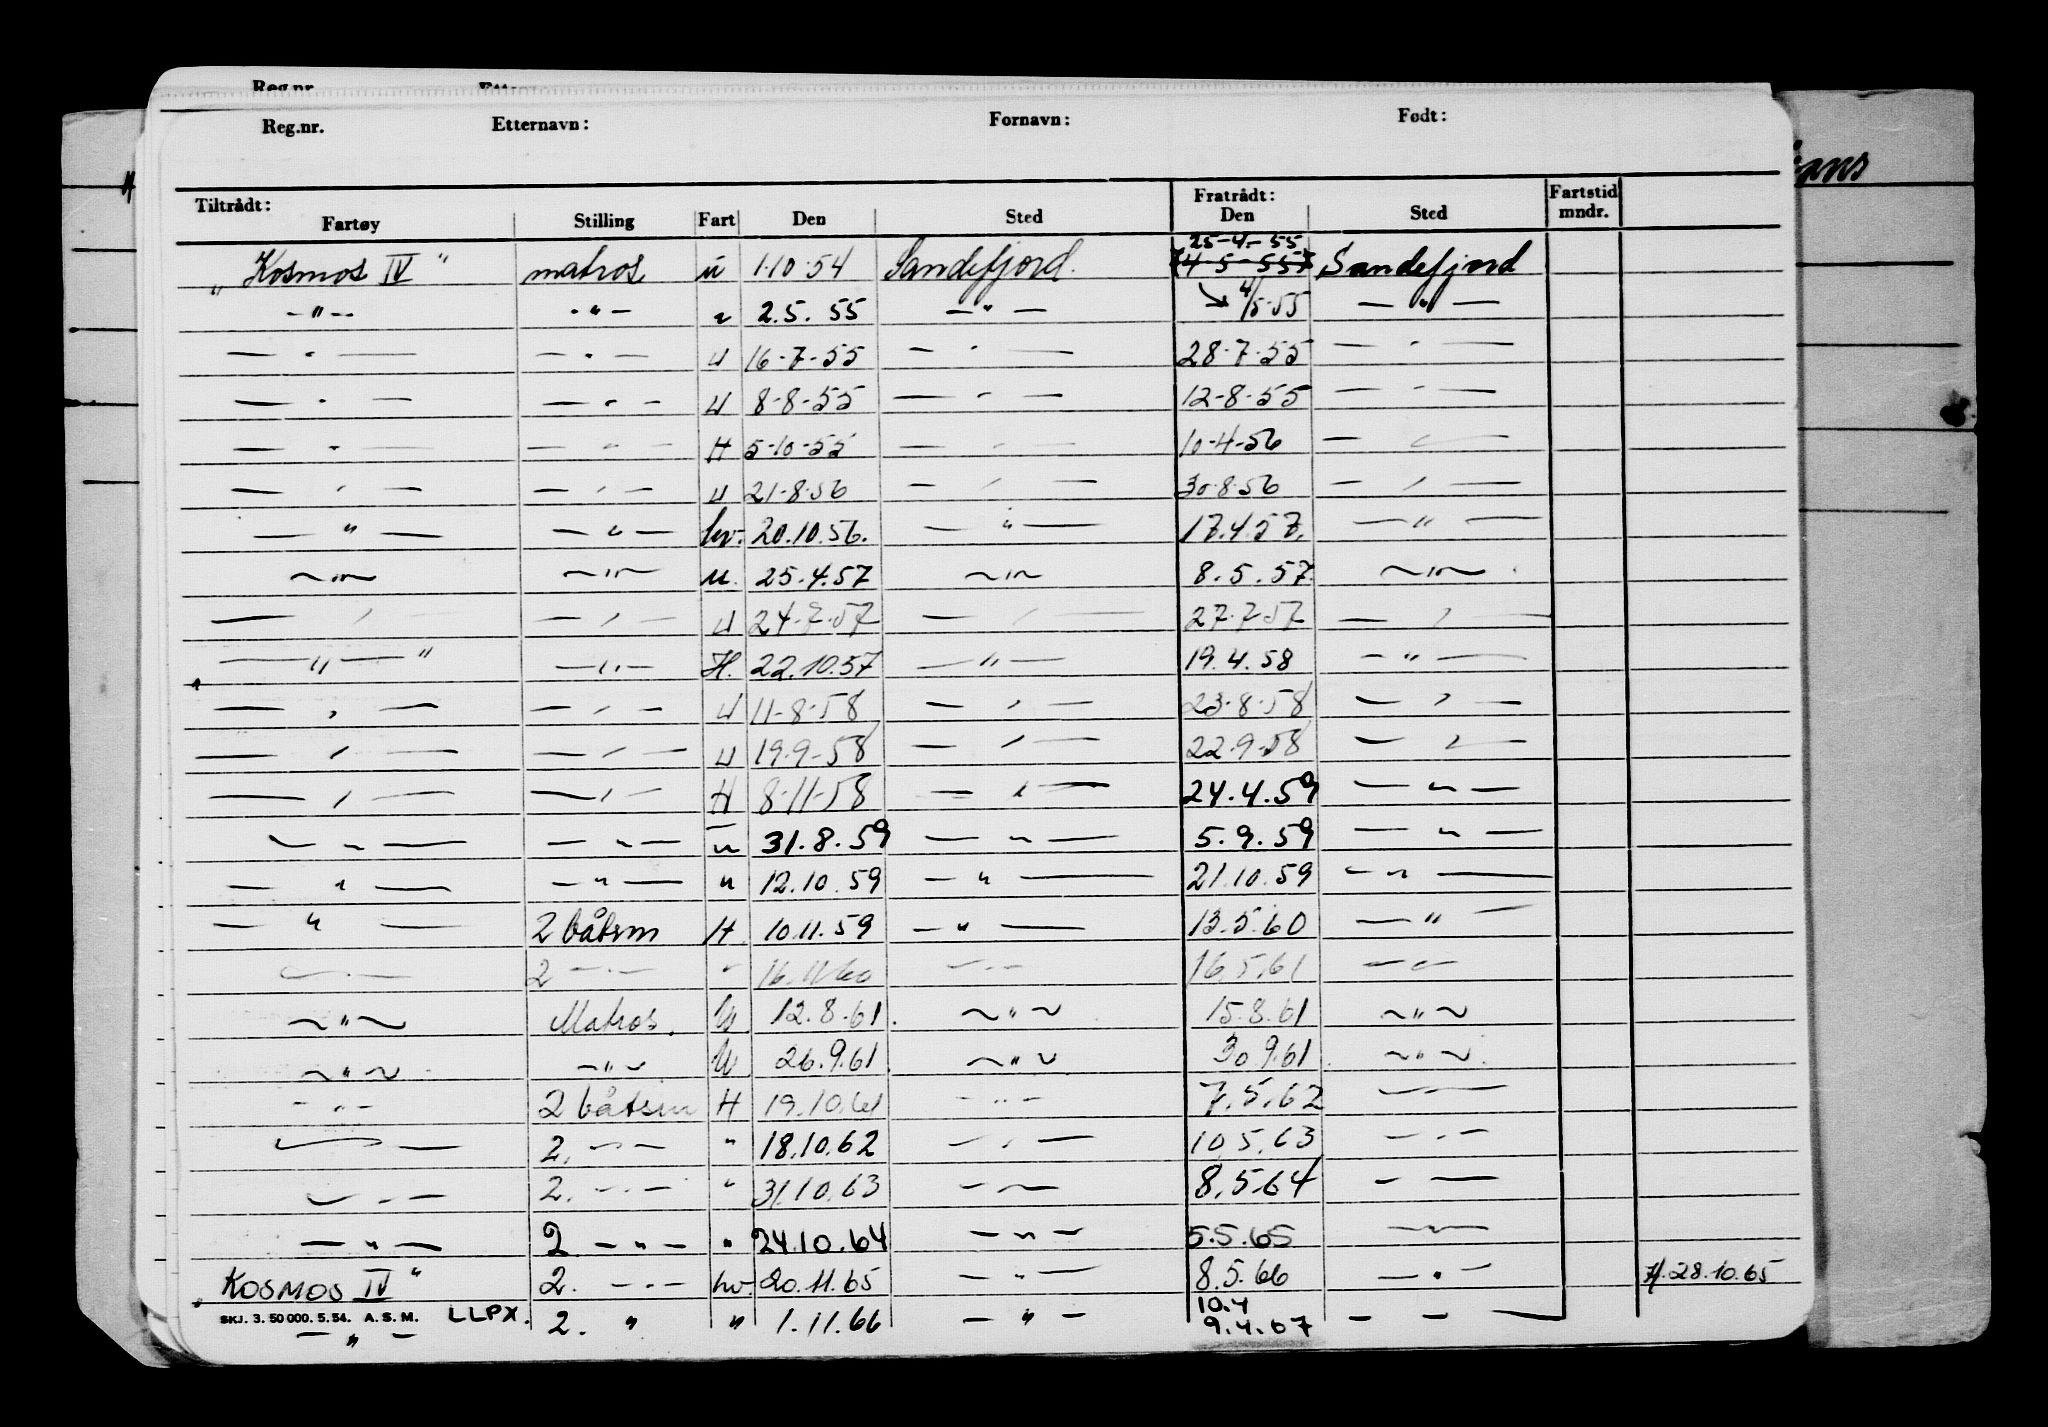 Reg.nr. Etternavn: Fornavn: Født:
Tiltrådt: Fratrådt: Fartstid
Fartøy Stilling Fart Den Sted Den Sted mndr.
25-4-55
„Kosmos IV" matros u 1.10.54 Sandefjord. Sandefjord
-"- -"- u 2.5.55 -"- 4/5-55 -"-
-"- -"- U 16-7-55 -"- 28-7-55 -"-
-"- -"- U 8-8-55 -"- 12-8-55 -"-
-"- -"- H 5-10-55 -"- 10-4-56 -"-
-"- -"- U 21-8-56 -"- 30-8-56 -"-
-"- -"- hv. 20.10.56. -"- 17.4.57. -"-
-"- -"- u. 25.4.57 -"- 8.5.57. -"-
-"- -"- U 24-7-57 -"- 27.7.57 -"-
-"- -"- H. 22.10.57 -"- 19.4.58 -"-
-"- -"- U 11-8-58 -"- 23-8-58 -"-
-"- -"- U 19-9-58 -"- 22-9-58 -"-
-"- -"- H 8-11-58 -"- 24.4.59 -"-
-"- -"- u 31.8.59 -"- 5.9.59 -"-
-"- -"- " 12.10.59 -"- 21.10.59 -"-
-"- 2 båtsm H 10.11.59 -"- 13.5.60 -"-
-"- 2 -"- " 16.11.60 -"- 16.5.61 -"-
-"- Matros. U 12.8.61. -"- 15.8.61 -"-
-"- -"- U 26.9.61. -"- 30 9.61. -"-
-"- 2 båtsm H 19.10.61 -"- 7.5.62 -"-
-"- 2. -"- " 18.10.62 -"- 10.5.63 -"-
-"- 2. -"- " 31.10.63 -"- 8.5.64 -"-
-"- 2 -"- " 24.10.64 -"- 5.5.65 -"-
„KOSMOS IV" 2. -"- hv. 20.11.65 -"- 8.5.66 -"- H. 28.10.65
10.4
SKJ. 3. 50 000. 5. 54. A. S. M. LLPX.
-"- 2. " " 1.11.66 -"- 9.4.67 - -